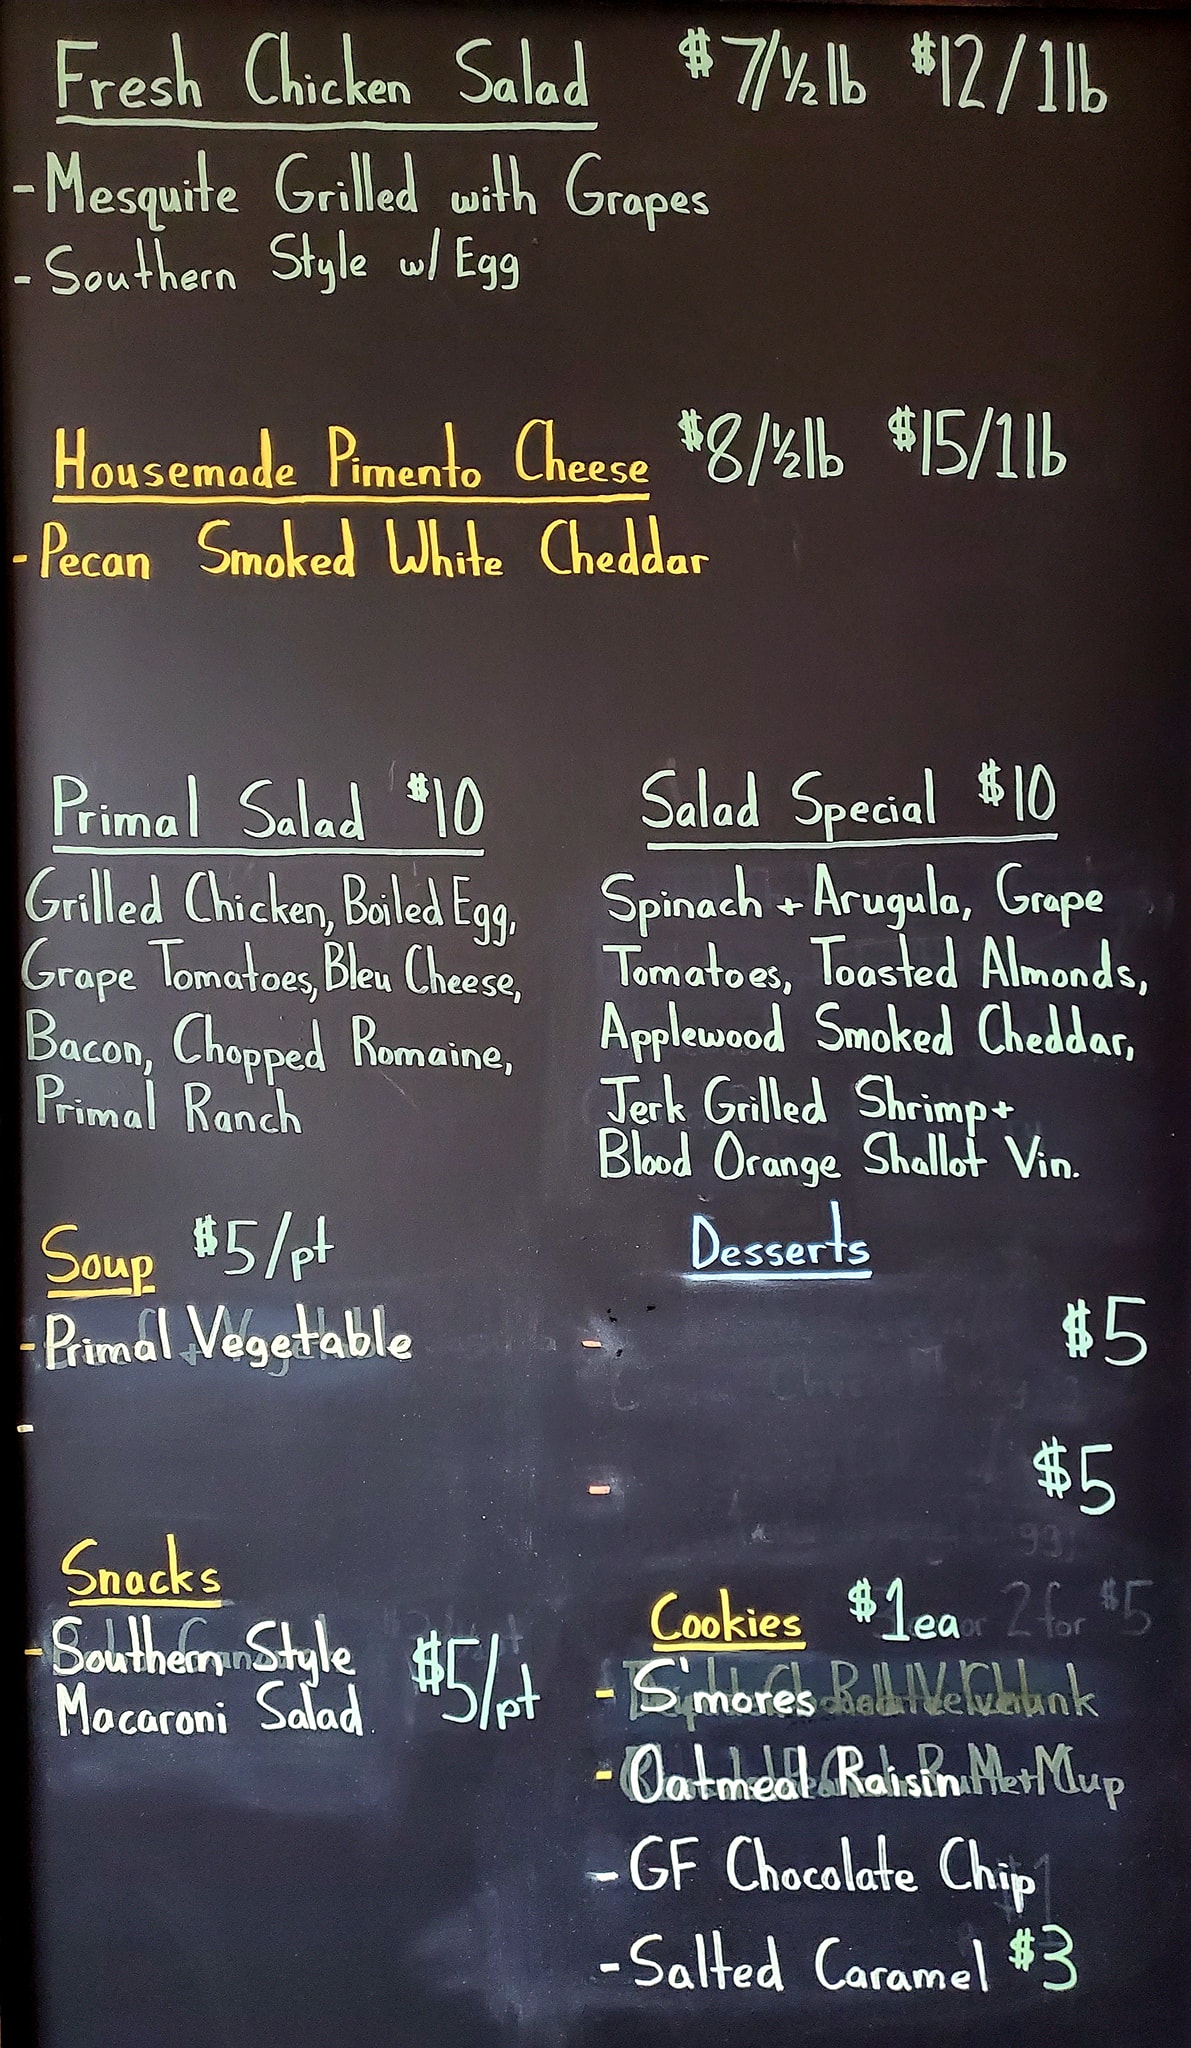 Fresh Chicken Salad $7/½lb $12/1lb
- Mesquite Grilled with Grapes
- Southern Style w/ Egg
Housemade Pimento Cheese $8/½lb $15/1lb
- Pecan Smoked White Cheddar
Primal Salad $10
Grilled Chicken, Boiled Egg,
Grape Tomatoes, Bleu Cheese,
Bacon, Chopped Romaine,
Primal Ranch
Salad Special $10
Spinach + Arugula, Grape
Tomatoes, Toasted Almonds,
Applewood Smoked Cheddar,
Jerk Grilled Shrimp +
Blood Orange Shallot Vin.
Soup $5/pt
- Primal Vegetable
-
Snacks
- Southern Style
Macaroni Salad $5/pt
Desserts
- $5
- $5
Cookies $1ea or 2 for $5
- S'mores
- Oatmeal Raisin
- GF Chocolate Chip
- Salted Caramel $3